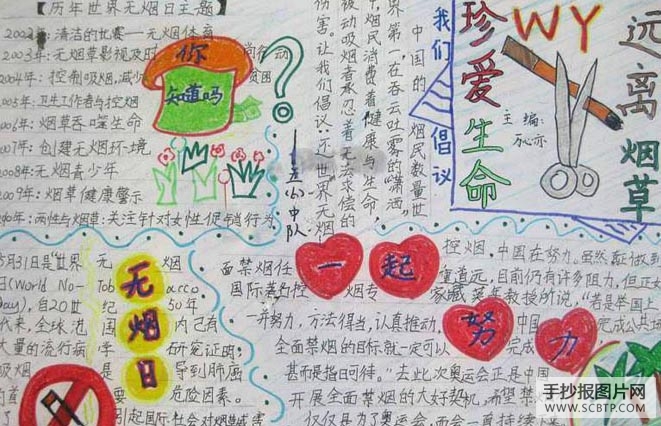 【历年世界无烟日主题】
2002年:清洁的比赛—无烟体育
2003年:无烟草影视及时
行动
2004年:控制吸烟,减少
贫困
2005年:卫生工作者与控烟
2006年:烟草吞噬生命
2007年:创建无烟环境
2008年:无烟青少年
2009年:烟草健康警示
2010年:两性与烟草:关注针对女性
你
知道吗
?
中队
我们倡议
中国的
烟民数量世
界第一,在吞云吐雾的"潇洒"
中,烟民消费着健康与生命,
被动吸烟者承忍着无法求偿的
伤害。让我们倡议:还世界无烟
珍爱生命
WY
远离烟草
主编:
5月31日是"世界无烟
日(World No-Tobacco
Day),自20世纪50年
代来,全球范围内已有
大量的流行病学研究证明:
吸烟是导到肺癌
的首要危险因素。
引起国际社会对烟草危害
无烟日
一起
努力
控烟,中国在努力,虽然
面禁烟任重道远,目前仍有许多阻力,但正如
国际著名控烟专家
教授所说,"若是举国上
一并努力,方法得当,认真推动,中国完成公共场
全面禁烟的目标就一定可以完成
甚而是指日可待。"去此次奥运会正是中国
开展全面禁烟的大好契机,希望禁烟
仅仅是为了奥运会,而会一直持续下
手抄报图片网
WWW.SCBTP.COM